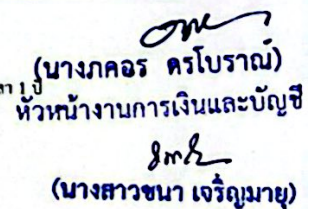 (นางภคอร ครโบราณ)
า 1 ปี
หัวหน้างานการเงินและบัญชี
(นางสาวชนา เจริญมายุ)